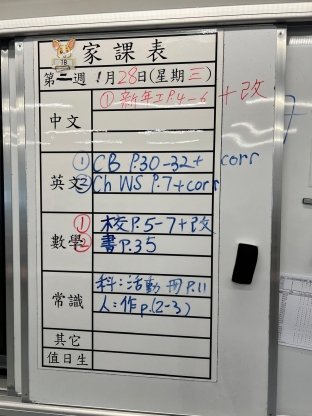 家課表
第二週 1月28日(星期三)
中文
① 新年工P.4-6 + 改
英文
① CB P.30-32+ corr
② Ch WS P.7+corr
數學
① 校P.5-7+改
② 書P.35
常識
科:活動冊P.11
人:作p.(2-3)
其它
值日生